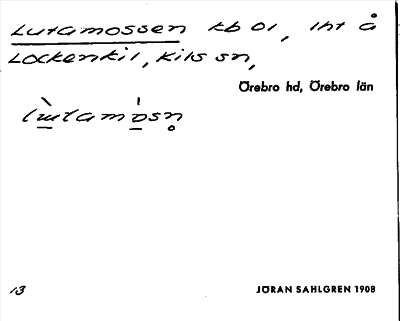 Lutamossen kb 01, 1ht å
Lockenkil, Kils sn,
Örebro hd, Örebro län
13
JÖRAN SAHLGREN 1908